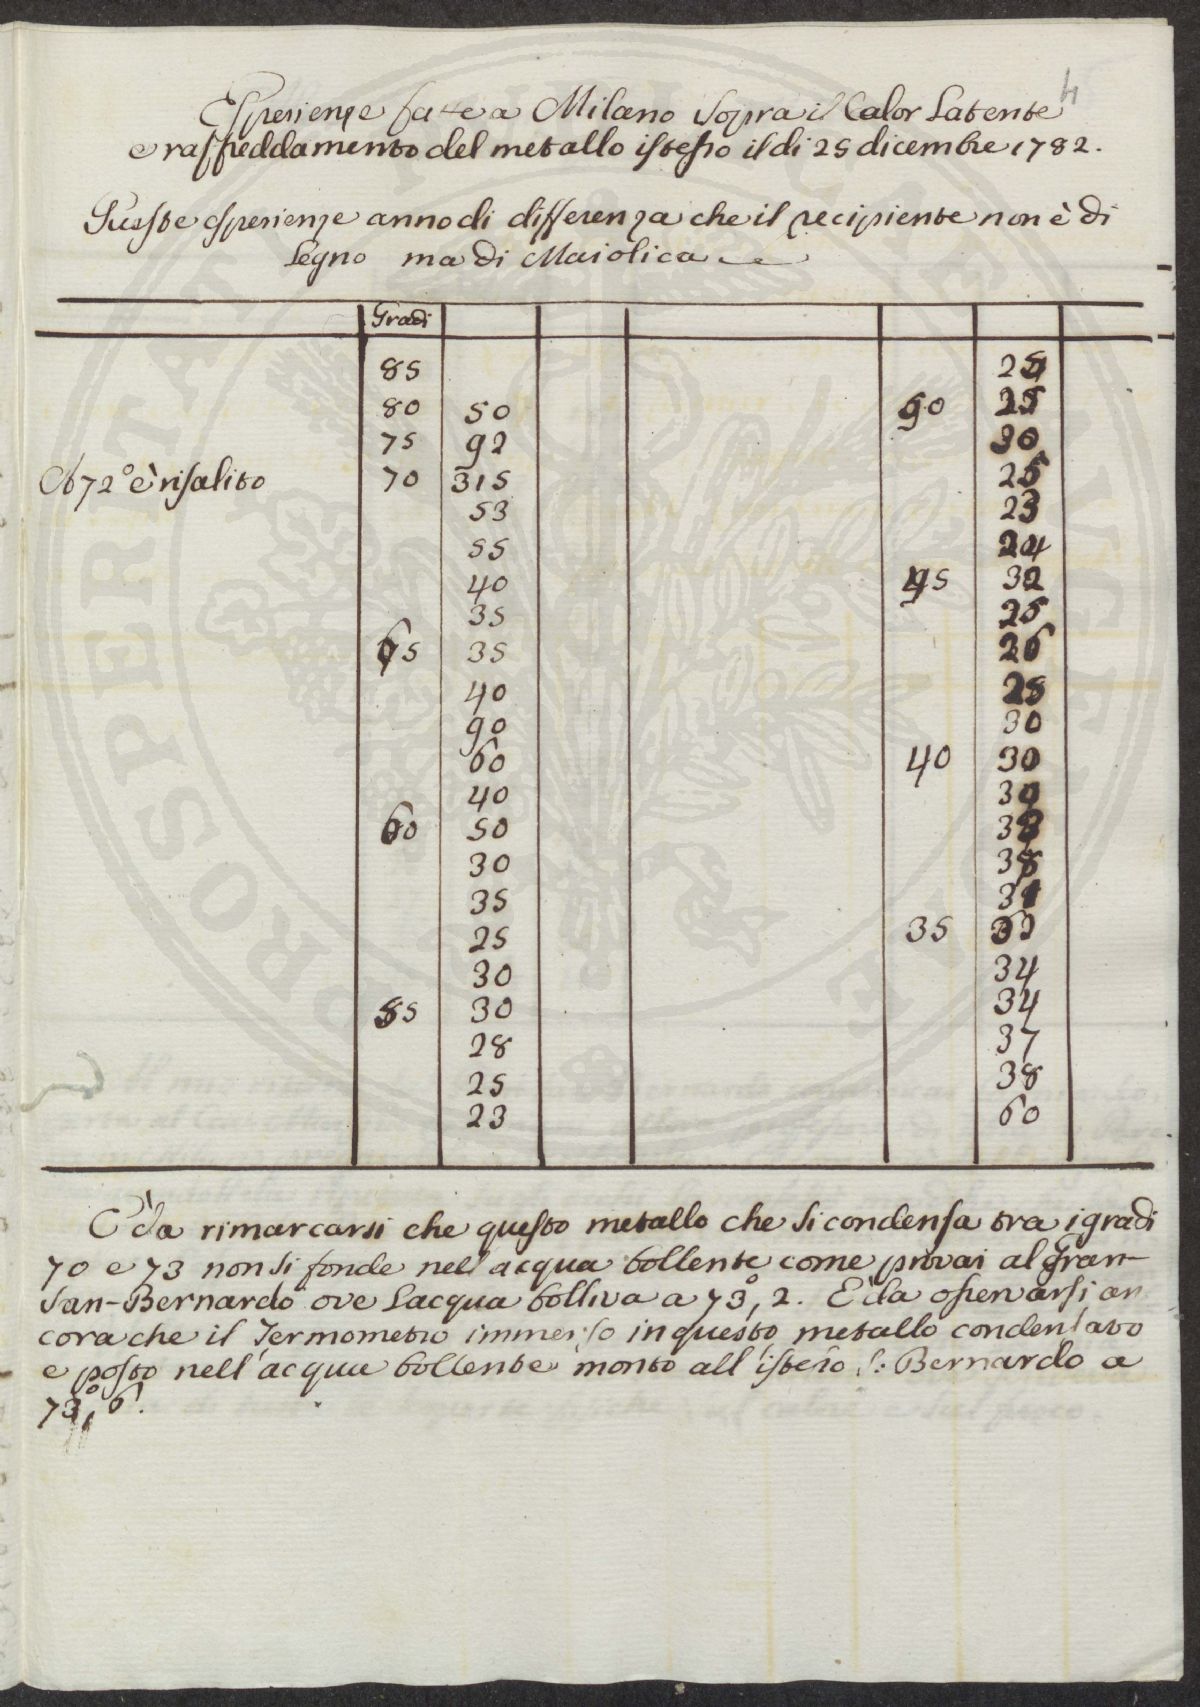 4
Esperienze fatte a Milano sopra il Calor Latente
e raffreddamento del metallo istesso il di 25 dicembre 1782.
Queste esperienze anno di differenza che il recipiente non è di
Legno ma di Maiolica
Gradi
85 25
80 50 50 25
75 92 30
A 72° è risalito 70 315 25
53 23
55 24
40 45 32
35 25
65 35 26
40 28
90 30
60 40 30
40 30
60 50 33
30 38
35 31
25 35 32
30 34
55 30 34
28 37
25 38
23 60
È da rimarcarsi che questo metallo che si condensa tra i gradi
70 e 73 non si fonde nell'acqua bollente come provai al Gran-
San-Bernardo ove l'acqua bolliva a 73°, 2. È da osservarsi an
cora che il Termometro immerso in questo metallo condensato
e posto nell'acqua bollente montò all'istesso S: Bernardo a
73°, 6.
PROSPERITATI PUBLICAE AUGENDAE